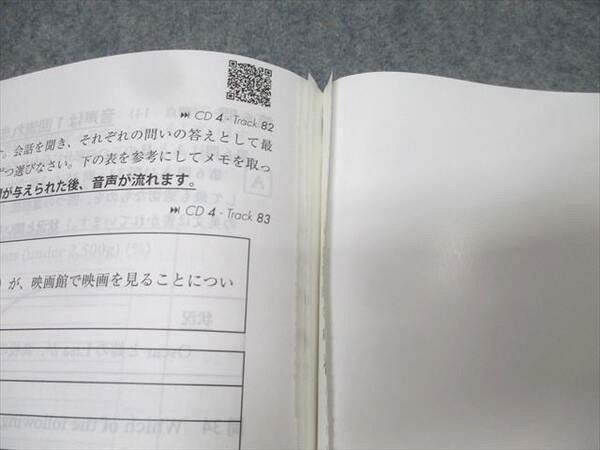 ⏭ CD 4 - Track 82
す。会話を聞き、それぞれの問いの答えとして最
ずつ選びなさい。下の表を参考にしてメモを取っ
間が与えられた後、音声が流れます。
⏭ CD 4 - Track 83
が、映画館で映画を見ることについ